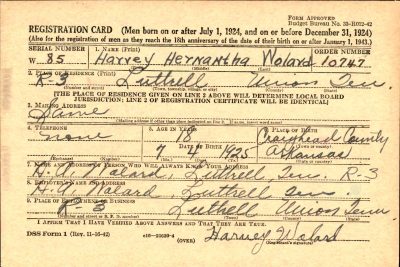 FORM APPROVED
Budget Bureau No. 33-R012-42
REGISTRATION CARD (Men born on or after July 1, 1924, and on or before December 31, 1924)
(Also for the registration of men as they reach the 18th anniversary of the date of their birth on or after January 1, 1943.)
SERIAL NUMBER 1. NAME (Print)
W 85 Harvey Hernantha Wolard 10747
(First) (Middle) (Last)
2. PLACE OF RESIDENCE (Print)
R-3 Luttrell Union Ten.
(Number and street) (Town, township, village, or city) (County) (State)
[THE PLACE OF RESIDENCE GIVEN ON LINE 2 ABOVE WILL DETERMINE LOCAL BOARD
JURISDICTION; LINE 2 OF REGISTRATION CERTIFICATE WILL BE IDENTICAL]
3. MAILING ADDRESS
Same
4. TELEPHONE 5. AGE IN YEARS 6. PLACE OF BIRTH
none 18 Craighead County
DATE OF BIRTH
7 1925 Arkansas
7. NAME AND ADDRESS OF PERSON WHO WILL ALWAYS KNOW YOUR ADDRESS
Walard, Luttrell, Ten. R-3
8. EMPLOYER'S NAME AND ADDRESS
Walard, Luttrell Ten
9. PLACE OF EMPLOYMENT OR BUSINESS
R-3 Luttrell Union Tenn.
(Number and street or R. F. D. number) (Town) (County) (State)
I AFFIRM THAT I HAVE VERIFIED ABOVE ANSWERS AND THAT THEY ARE TRUE.
DSS Form 1 (Rev. 11-16-42) (OVER) Harvey Wolard
(Registrant's signature)